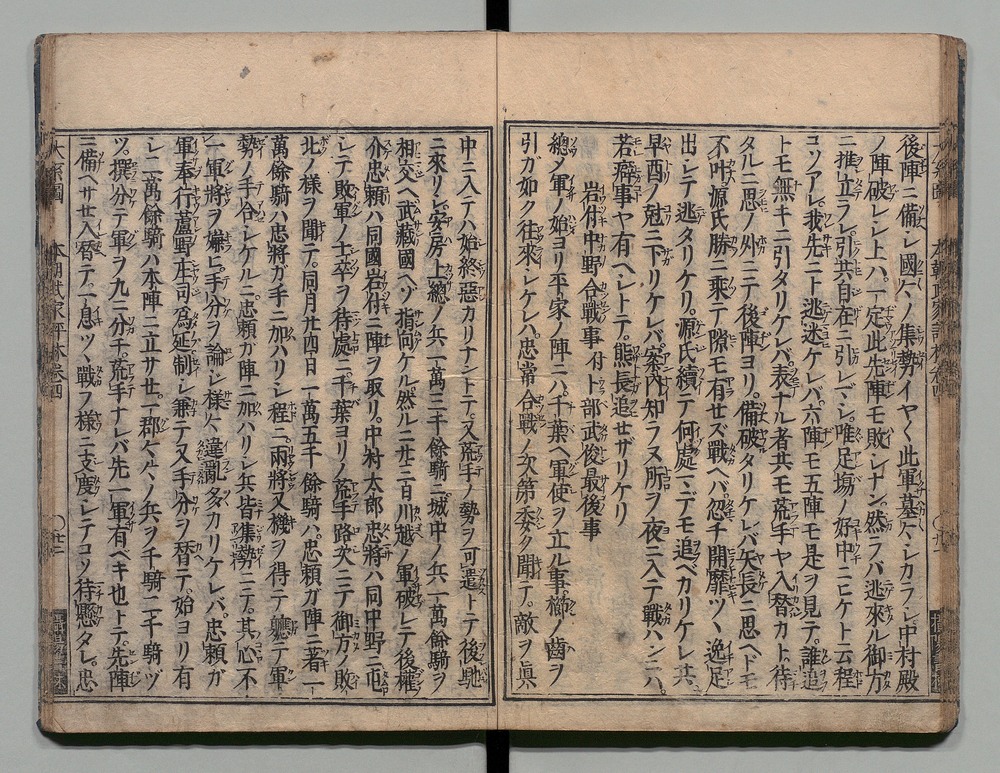 後陣ニ備シ國々ノ集勢イヤ〱此軍墓々シカラシ中村殿
ノ陣破レシ上ハ一定此先陣モ敗レナン然ラバ逃來ル御方
ニ推立ラレ引共自在ニ引レマシ唯足場ノ好中ニヒケト云程
コソアレ我先ニト逃迷ケレバ六陣モ五陣モ是ヲ見テ誰追
トモ無キニ引タリケレバ表ナル者共モ荒手ヤ入替カト待
タルニ思ノ外ニテ後陣ヨリ備破タリケレバ矢長ニ思ヘドモ
不叶源氏勝ニ乘テ隙モ有セズ戰ヘバ忽チ開靡ツヽ逸足
出シテ逃タリケリ源氏續テ何處マデモ追ベカリケレ共
早酉ノ尅ニ下リケレバ案内知ラヌ所ヲ夜ニ入テ戰ハンニハ
若癖事ヤ有ヘシトテ熊長追セザリケリ
岩付中野合戰事付卜部武俊最後事
總ノ軍ノ始ヨリ平家ノ陣ニハ千葉ヘ軍使ヲ立ル事櫛ノ齒ヲ
引ガ如ク往來シケレバ忠常合戰ノ次第委ク聞テ敵ヲ眞
中ニ入テハ始終惡カリナントテ又荒手ノ勢ヲ可遣トテ後馳
ニ來リシ安房上總ノ兵一萬三千餘騎ニ城中ノ兵一萬餘騎ヲ
相交ヘ武藏國ヘゾ指向ケル然ルニ廿三日川越ノ軍破レテ後權
介忠頼ハ同國岩付ニ陣ヲ取リ中村太郎忠將ハ同中野ニ屯
シテ敗軍ノ士卒ヲ待處ニ千葉ヨリノ荒手路次ニテ御方ノ敗
北ノ樣ヲ聞テ同月廿四日一萬五千餘騎ハ忠頼ガ陣ニ著一
萬餘騎ハ忠將ガ手ニ加ハリシ程ニ兩將又機ヲ得テ聽テ軍
勢ノ手合シケルニ忠頼ガ陣ニ加ハリシ兵皆集勢ニテ其心不
一軍將ヲ嫌ヒ手分ヲ論シ樣々違亂多カリケレバ忠頼ガ
軍奉行蘆野庄司爲延制シ兼テ又手分ヲ替テ始ヨリ有
シ二萬餘騎ハ本陣ニ立サセ一郡々々ノ兵ヲ千騎二千騎ヅ
ツ撰分テ軍ヲ九ニ分チ荒手ナレバ先一軍有ベキ也トテ先陣
ニ備ヘサセ入替テ一息ツヽ戰フ樣ニ支度シテコソ待懸タレ忠